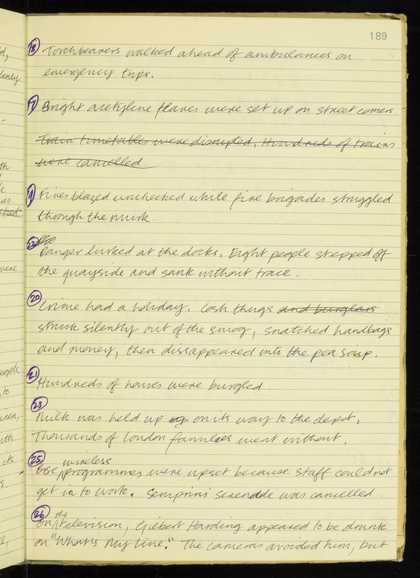 189
18 Torchbearers walked ahead of ambulances on
emergency trips.
17 Bright acetylene flares were set up on street corners
Train timetables were disrupted, Hundreds of trains
were cancelled
19 Fires blazed unchecked while fire brigades struggled
through the murk
Danger lurked at the docks. Eight people stepped off
the quayside and sank without trace.
20 Crime had a holiday. Cosh thugs and burglars
struck silently out of the smog, snatched handbags
and money, then dissappeared into the pea soup.
21 Hundreds of houses were burgled
23
Milk was held up on its way to the depot.
Thousands of London families went without.
25 wireless
BBC programmes were upset because staff could not
get in to work. Semprini serenade was cancelled
26 the
On television, Gilbert Harding appeared to be drunk
on "What's My Line." The cameras avoided him, but